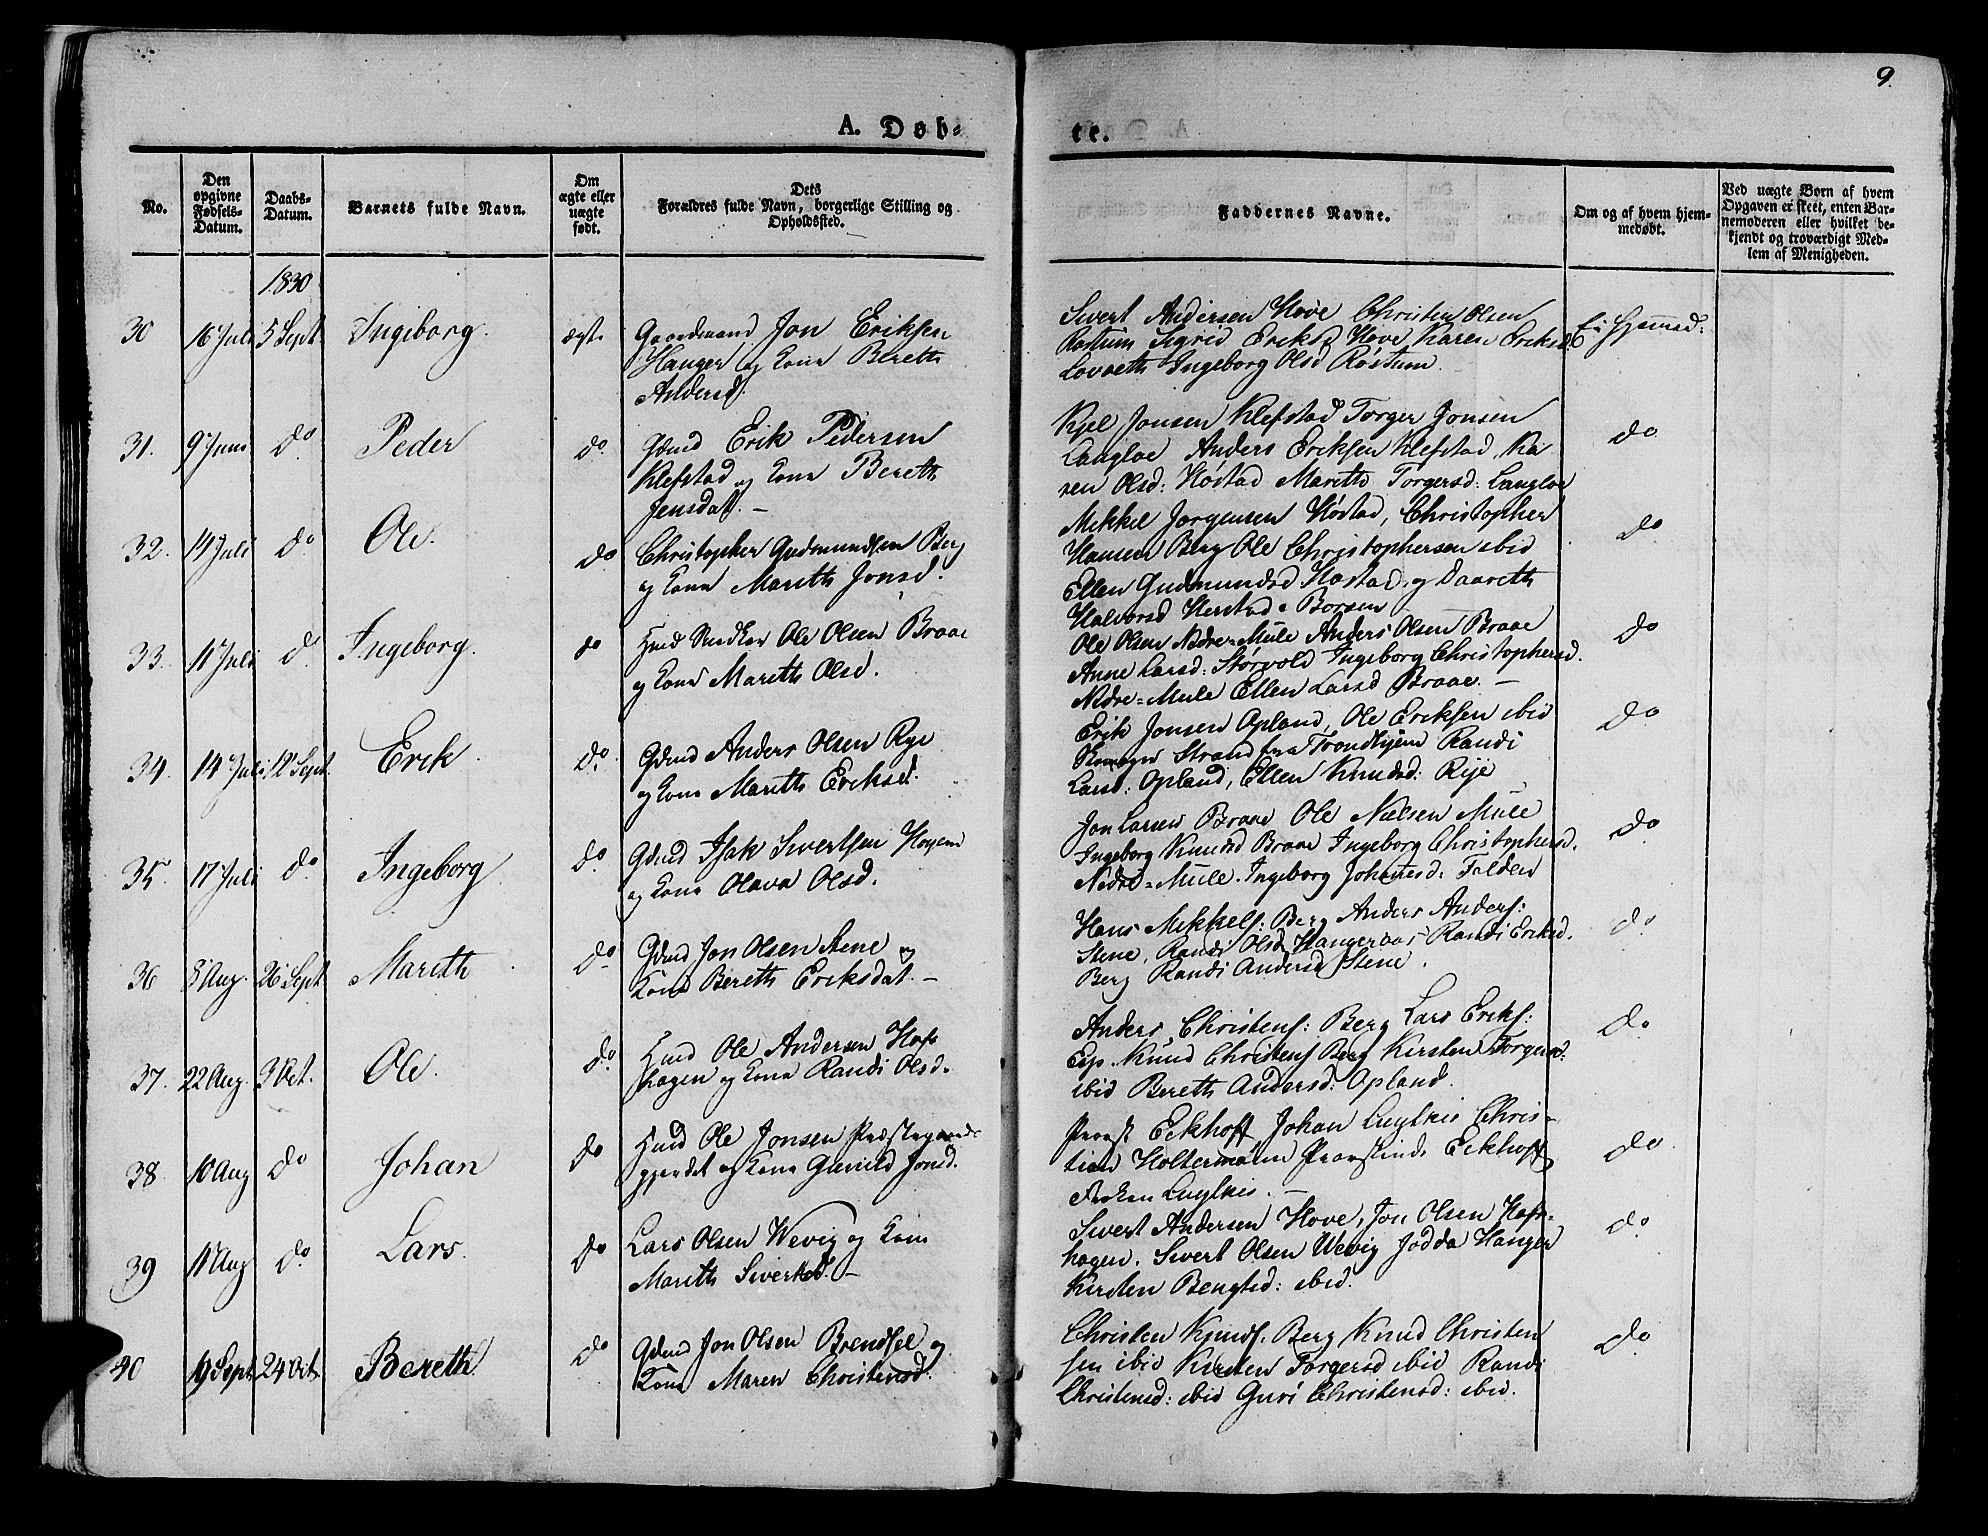 9.
A. Døb-
te.
No.
Den opgivne Fødsels-Datum.
Daabs-Datum.
Barnets fulde Navn.
Om ægte eller uægte født.
Dets Forældres fulde Navn, borgerlige Stilling og Opholdssted.
Faddernes Navne.
Om og af hvem hjem-medøbt.
Ved uægte Børn af hvem Opgaven er skeet, enten Bar-nemoderen eller hvilket be-kjendt og troværdigt Med-lem af Menigheden.
1830
30 16 Juli 5 Sept Ingeborg. ægte
Gaardmand Jon Eriksen
Hanger og Kone Bereth
Andersd.
Sivert Andersen Hove Christen Olsen
Rostum Sigrid Eriksd Hove Karen Eriksd
Lovseth Ingeborg Olsd Røstum.
Ei hjemmed:
31. 9 Juni do Peder do
Gdmd Erik Pedersen
Klefstad og Kone Bereth
Jensdat. -
Kjel Jonsen Klefstad Torger Jonsen
Langloe Anders Eriksen Klefstad, Ka
ren Olsd: Høstad Mareth Torgersd: Langloe
do
32. 14 Juli do Ole. do
Christopher Gudmundsen Berg
og Kone Mareth Jonsd.
Mikkel Jørgensen Høstad, Christopher
Hansen Berg Ole Christophersen ibid
Ellen Gudmundsd Høstad og Daareth
Halvorsd Herstad i Børsen
do
33. 11 Juli do Ingeborg. do
Huusmd Ole Olsen Braae
og Kone Mareth Olsd.
Ole Olsen Nedre-Mule Anders Olsen Braae
Anne Larsd: Storvold Ingeborg Christophersd.
Nedre-Mule Ellen Larsd Braae. -
do
34. 14 Juli 12 Sept. Erik. do
Gdmd Anders Olsen Rye
og Kone Mareth Eriksd.
Erik Jonsen Opland, Ole Eriksen ibid
Strand fra Trondhjem Randi
Larsd: Opland, Ellen Knudsd: Rye
do
35. 17 Juli do Ingeborg do
Gdmd Isak Sivertsen
og Kone Olava Olsd.
Jon Larsen Braae Ole Nielsen Mule
Ingeborg Knudsd Braae Ingeborg Christophersd.
Nedre-Mule. Ingeborg Johansd: Folden
do
36 5 Aug. 26 Sept Mareth do
Gdmd Jon Olsen Stene og
Kone Bereth Eriksdat. -
Hans Mikkels: Berg Anders Anders:
Stene, Randi Olsd Hangeraas Randi Eriksd.
Berg Randi Andersd Stene.
do
37. 22 Aug. 3 Oct. Ole. do
Hmd Ole Andersen Hofs
hagen og Kone Randi Olsd.
Anders Christens: Berg Lars Eriks:
Esp. Knud Christens Berg Kirsten Torgersd.
ibid Bereth Andersd: Opland.
do
38 10 Aug do Johan do
Hmd Ole Jonsen Præstegaards
gjerdet og Kone Gunild Jonsd.
Provst Eckhoff, Johan Chris-
tian Holtermann Provstinde Eckhoff
do
39 11 Aug do Lars. do
Lars Olsen Wevig og Kone
Mareth Sivertsd. -
Sivert Andersen Hove, Jon Olsen Hofs-
hagen. Sivert Olsen Wevig Jodda Hanger
Kirsten Bengtsd: ibid.
do
40 19 Sept 24 Oct. Bereth do
Gdmd Jon Olsen Brendsel og
Kone Maren Christensd.
Christen Knuds. Berg Knud Christen
sen ibid Kirsten Torgersd ibid Randi
Christensd: ibid Guri Christensd: ibid.
do